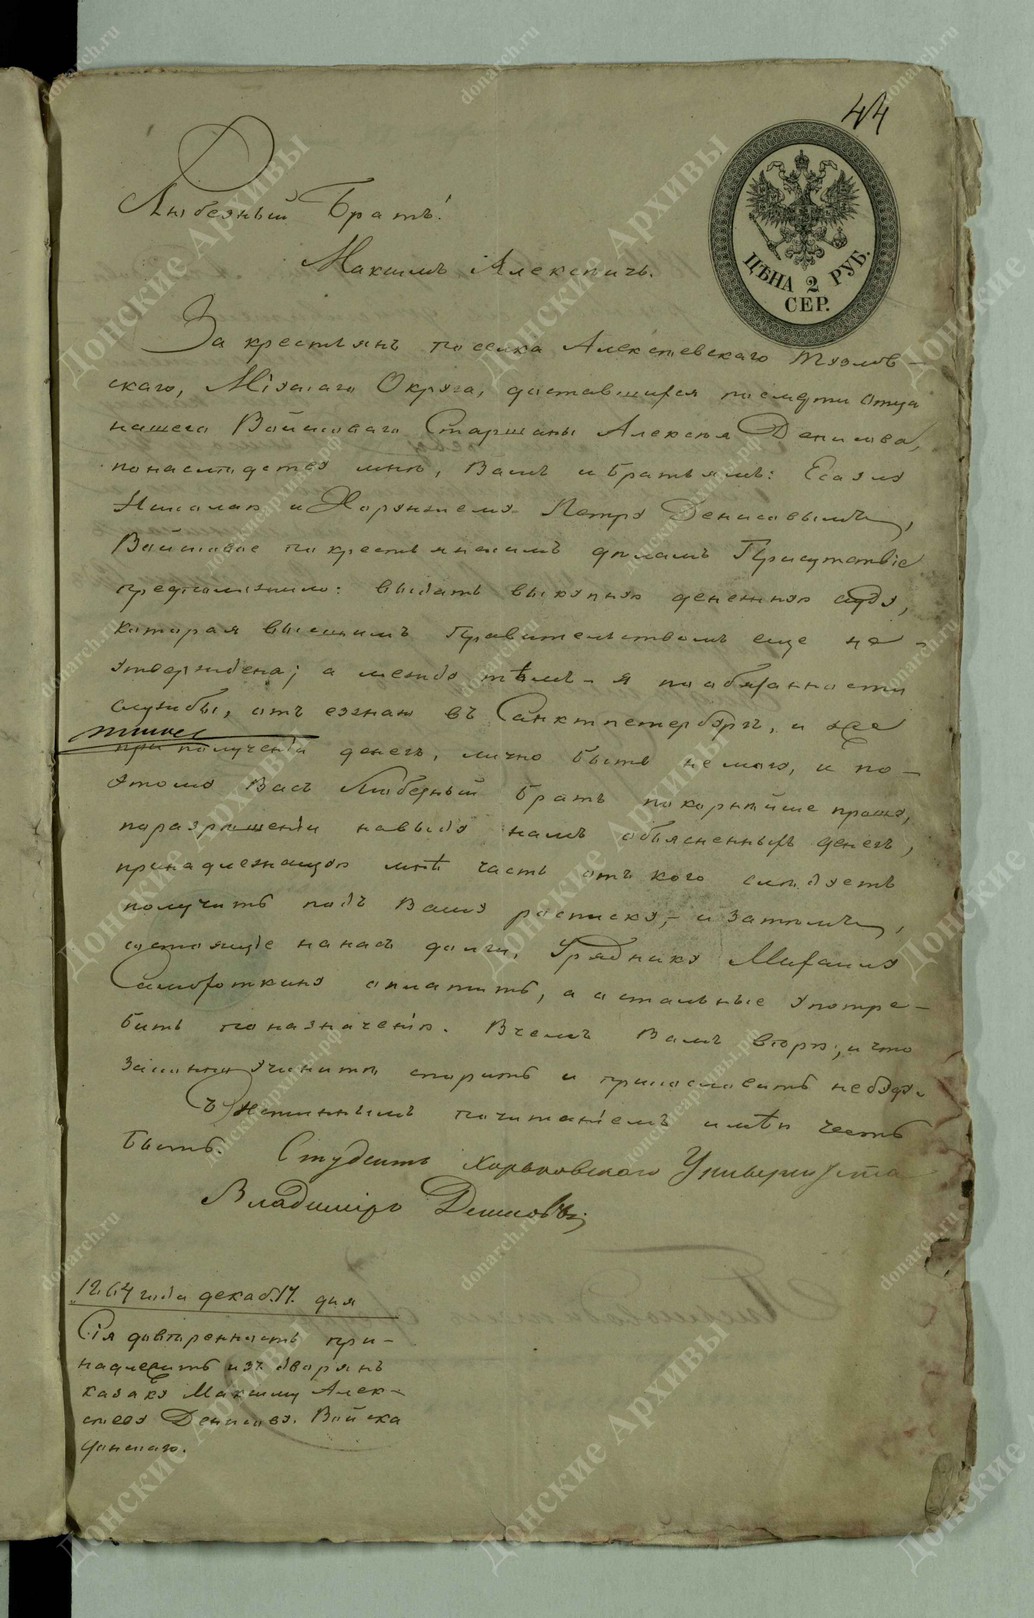 44
ЦѢНА 2 РУБ.
СЕР.
Любезный Братъ!
Максимъ Алексѣичъ.
За крестьянъ поселка Алексѣевскаго Тузлов-
скаго, Міускаго Округа, доставшихся посмерти Отца
нашего Войсковаго Старшины Алексѣя Денисова,
понаслѣдству мнѣ, Вамъ и братьямъ: Есаулу
Николаю и Хорунжему Петру Денисовымъ,
Войсковое покрестьянскимъ дѣламъ Присутствіе
предположило: выдать выкупную денежную суду,
которая высшимъ Правительствомъ еще не-
утверждена; а между тѣмъ - я пообязанности
службы, отъезжаю въ Санктпетербургъ, и
при получении денегъ, лично быть немогу, и по-
этому Васъ Любезный братъ покорнѣйше прошу,
поразрѣшеніи навыду намъ объясненныхъ денегъ,
принадлежащую мнѣ часть отъ кого слѣдуетъ
получить подъ Вашу росписку, - и затѣмъ,
состоящіе нанасъ долги, Уряднику Михаилу
оплатить, а остальные употре-
бить поназначенію. Вчемъ Вамъ вѣрю, и что
законно учините спорить и прекословить небуду.
Съ истиннымъ почитаніемъ имѣю честь
быть. Студентъ Харьковского Университета
Владиміръ Денисовъ
1864 года декаб. 17. дня
Сія довѣренность при-
надлежитъ изъ дворянъ
казаку Максиму Алек-
сѣеву Денисову. Войска
Донскаго.